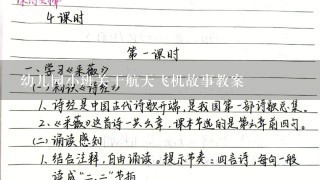 4课时
第一课时
一、学习《采薇》
幼儿园小班关于航天飞机故事教案
(一)知识《诗经》
1、诗经是中国古代诗歌开端,是我国第一部诗歌总集。
2、《采薇》这首诗一共六章,课本节选的是第六章前四句。
(二)诵读感知
1、结合注释,自由诵读。提示节奏:四言诗,每句一般
读成"二、二"节拍